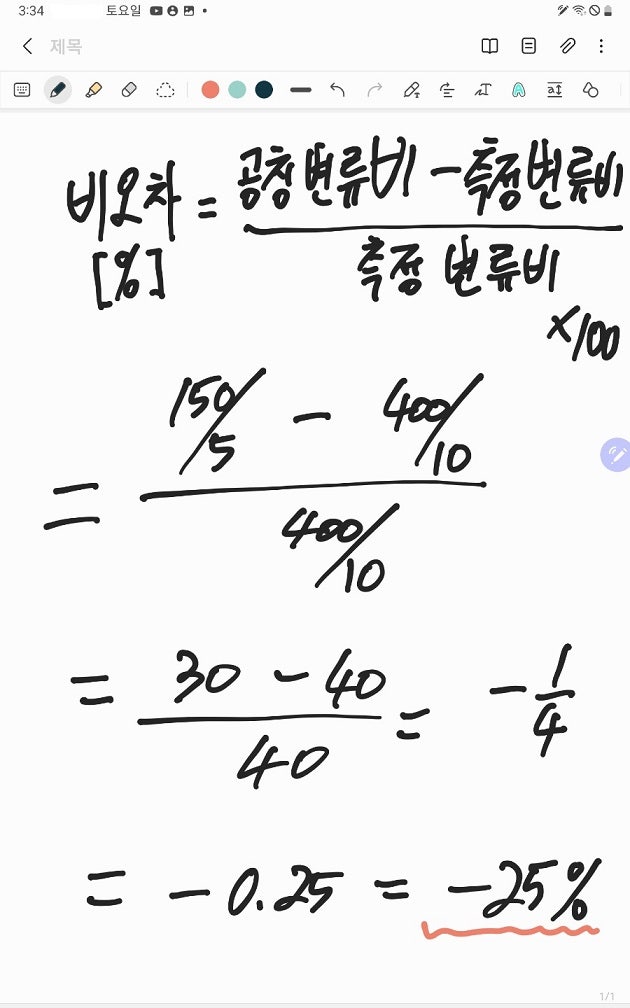 3:34 토요일
제목
비오차 = 공칭 변류비 - 측정 변류비
[%] 측정 변류비
×100
150/5 - 400/10
=
400/10
= 30 - 40 = - 1/4
40
= -0.25 = -25%
1/1